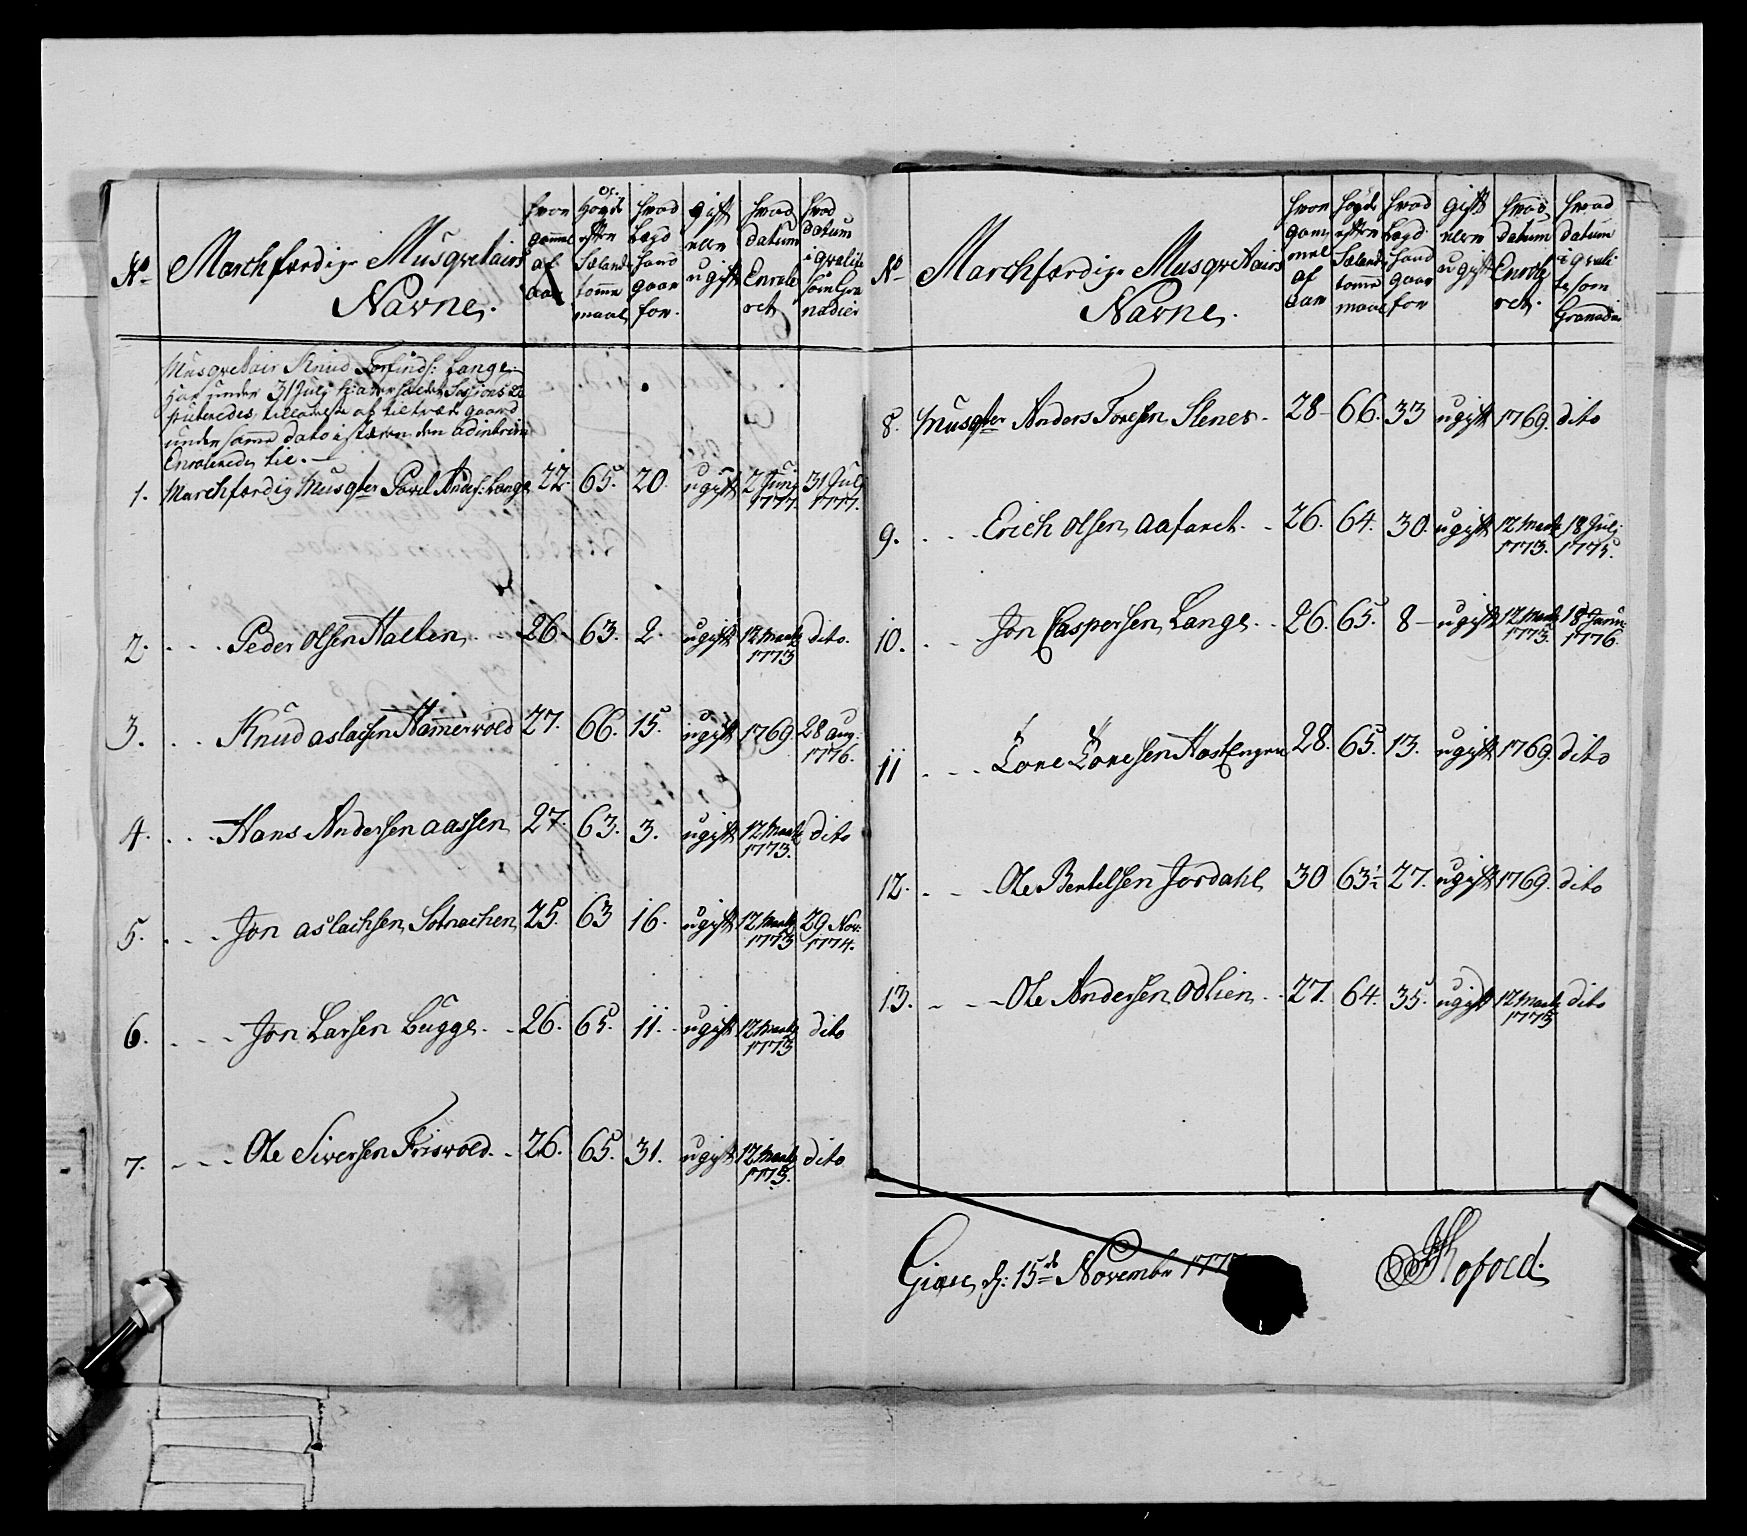 No Marchfærdige Musqvetairs Navne. hvor gamel af aar Høyde efter Sælands tomme maal hvad Lægd hand gaar for. gift eller ugift hvad datum Enrolle ret hvad datum i qvalite som Gre nadier
Musqvetair Knud Torfinds: Lange
har under 31 July
under samme dato istæden den
Enrolerede til.
1. Marchfærdig Musqter Povel Anders: Lange 22. 65. 20. ugift 2 Junj 1777. 31 July 1777.
2. Peder Olsen Halten 26. 63. 2. ugift 12 Martz 1773 dito.
3. Knud aslachsen Hammervold 27. 66. 15. ugift 1769 28 Aug. 1776.
4. Hans Andersen aassen 27. 63. 3. ugift 12 Martz 1773. dito
5. Jon aslachsen Sotnachen 25. 63 16. ugift 12 Martz 1773 29 Nov: 1774.
6. Jon Larsen Bugge 26. 65. 11. ugift 12 Martz 1773 dito
7. Ole Siversen Friswold 26. 65. 31. ugift 12 Martz 1773. dito
No Marchfærdige Musqvetairs Navne. hvor gam mel af aar høyde efter Sælands tomme maal hvad Lægd hand gaar for gift eller ugift hvad datum Enrolle ret. hvad datum i qvali te som Granadier
8. Musqter Anders Toresen Stener 28 66. 33 ugift 1769. dito
9. Erich Olsen aafaret 26. 64. 30. ugift 12 Martz 1773. 18 Julj 1775.
10. Jon Caspersen Lange 26. 65. 8 ugift 12 Martz 1773. 18 Janu: 1776.
11 Tore Toresen 28. 65. 13. ugift 1769. dito
12. Ole Bertelsen Jordahl 30 63½ 27. ugift 1769. dito
13. Ole Andersen Odlien 27. 64. 35. ugift 12 Martz 1773 dito
d: 15de November 177
Kofoed.